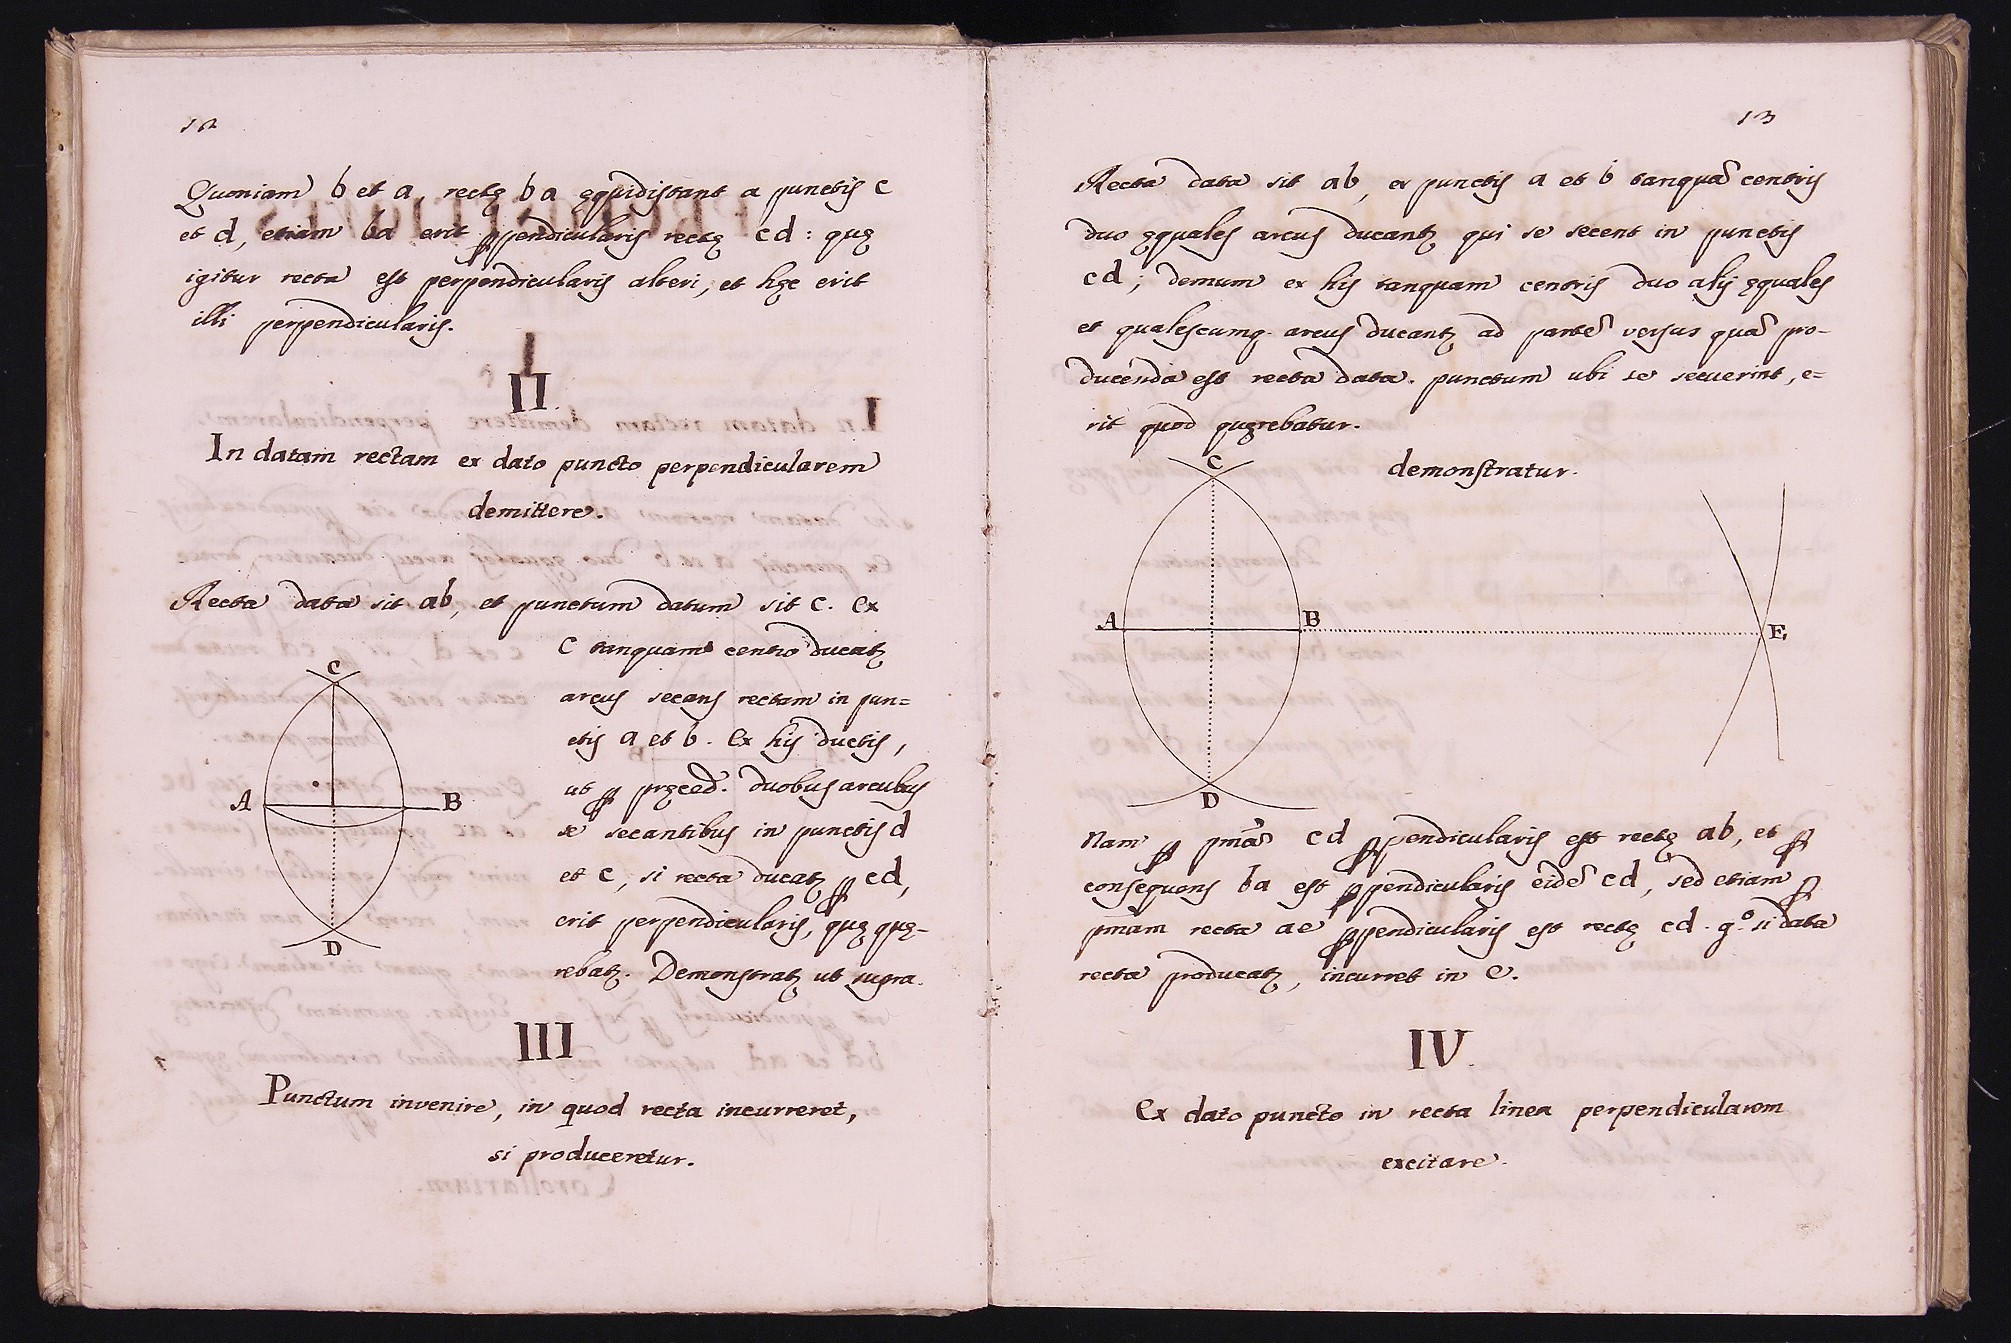 12
Quoniam b et a, rectę ba ęquidistant a punctis c
et d, etiam ba erit ꝑpendicularis rectę cd: quę
igitur recta est perpendicularis alteri, et hęc erit
illi perpendicularis.
II.
In datam rectam ex dato puncto perpendicularem
demittere.
Recta data sit ab, et punctum datum sit c. Ex
c tanquam centro ducatꝫ
arcus secans rectam in pun=
ctis a et b. Ex his ductis,
ut ꝑ pręced. duobus arcubus
se secantibus in punctis d
et c, si recta ducatꝫ ꝑ cd,
erit perpendicularis, quę quę-
rebatꝫ. Demonstratꝫ ut supra.
C
A
B
D
III
Punctum invenire, in quod recta incurreret,
si produceretur.
13
Recta data sit ab, ex punctis a et b tanquā centris
duo ęquales arcus ducantꝫ qui se secent in punctis
cd; demum ex his tanquam centris duo alij ęquales
et qualescumq. arcus ducantꝫ ad partē versus quā pro-
ducenda est recta data. punctum ubi se secuerint, e=
rit quod quęrebatur.
demonstratur.
C
A
B
E
D
Nam ꝑ pmā cd ꝑpendicularis est rectę ab, et ꝑ
consequens ba est ꝑpendicularis eidē cd, sed etiam ꝑ
pmam recta ae ꝑpendicularis est rectę cd. g.º si data
recta producatꝫ, incurret in e.
IV.
Ex dato puncto in recta linea perpendicularem
excitare.